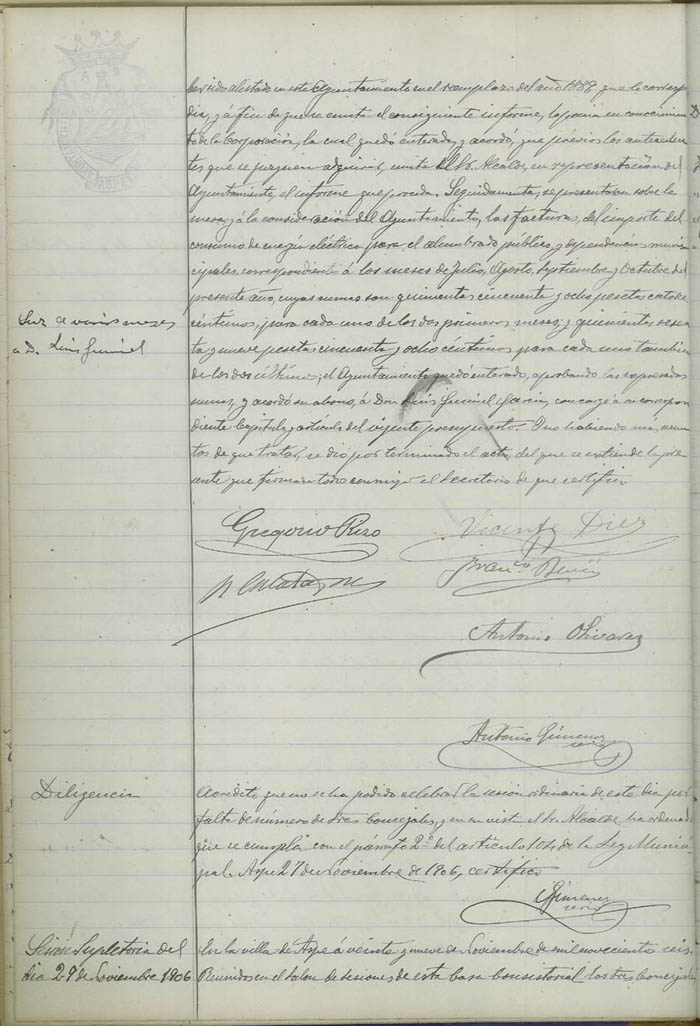 ber sido alistado en este Ayuntamiento en el reemplazo del año 1888 que le correspon
día, y á fin de que se emita el consiguiente informe, lo ponía en conocimien
to de la Corporación, la cual quedó enterada, y acordó, que previos los anteceden
tes que se juzguen adquirir, emita el Sr. Alcalde, en representación del
Ayuntamiento, el informe que proceda. Seguidamente, se presentaron sobre la
mesa, y á la consideración del Ayuntamiento, las facturas, del importe del
consumo de energía eléctrica para el alumbrado público y dependencias muni
cipales, correspondiente á los meses de Julio, Agosto, Septiembre y Octubre del
presente año, cuyas sumas son quinientas cincuenta y ocho pesetas catorce
Luz de varios meses
a D. Luis Gumiel
céntimos, para cada uno de los dos primeros meses, y quinientas sesen
ta y nueve pesetas cincuenta y ocho céntimos para cada uno tambien
de los dos últimos; el Ayuntamiento quedó enterado, aprobando las expresadas
sumas, y acordó su abono, á Don Luis Gumiel García, con cargo á su correspon
diente Capítulo y artículo del vigente presupuesto. Y no habiendo más asun
tos de que tratar, se dió por terminado el acto, del que se extiende la pre
sente que firman todos conmigo el Secretario de que certifico
Gregorio Rizo
Vicente Diez
Franco
Antonio Olivares
Antonio Gimenez
serio
Diligencia
Acredito que no se ha podido celebrar la sesión ordinaria de este dia por
falta de número de Sres Concejales, y en su vista el Sr. Alcalde, ha ordenado
que se cumpla con el párrafo 2.º del artículo 104 de la Ley Munici
pal. Aspe 27 de Noviembre de 1906, certifico
Gimenez
serio
Sesión Supletoria del
dia 29 de Noviembre 1906
En la villa de Aspe á veinte y nueve de Noviembre de mil novecientos seis.
Reunidos en el Salon de sesiones de esta Casa Consistorial los Sres Concejales